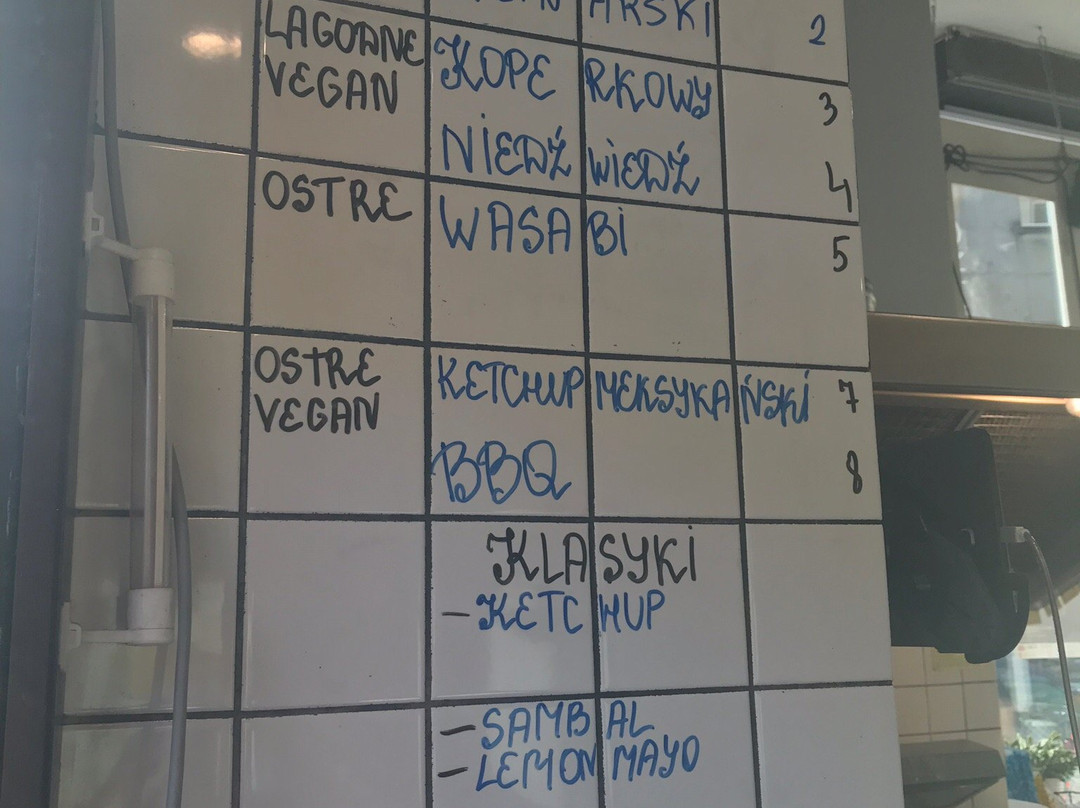 ARSKI 2
ŁAGODNE
VEGAN
KOPERKOWY 3
NIEDŹWIEDŹ 4
OSTRE WASABI 5
OSTRE
VEGAN
KETCHUP MEKSYKAŃSKI 7
BBQ 8
KLASYKI
- KETCHUP
- SAMBAL
- LEMON MAYO